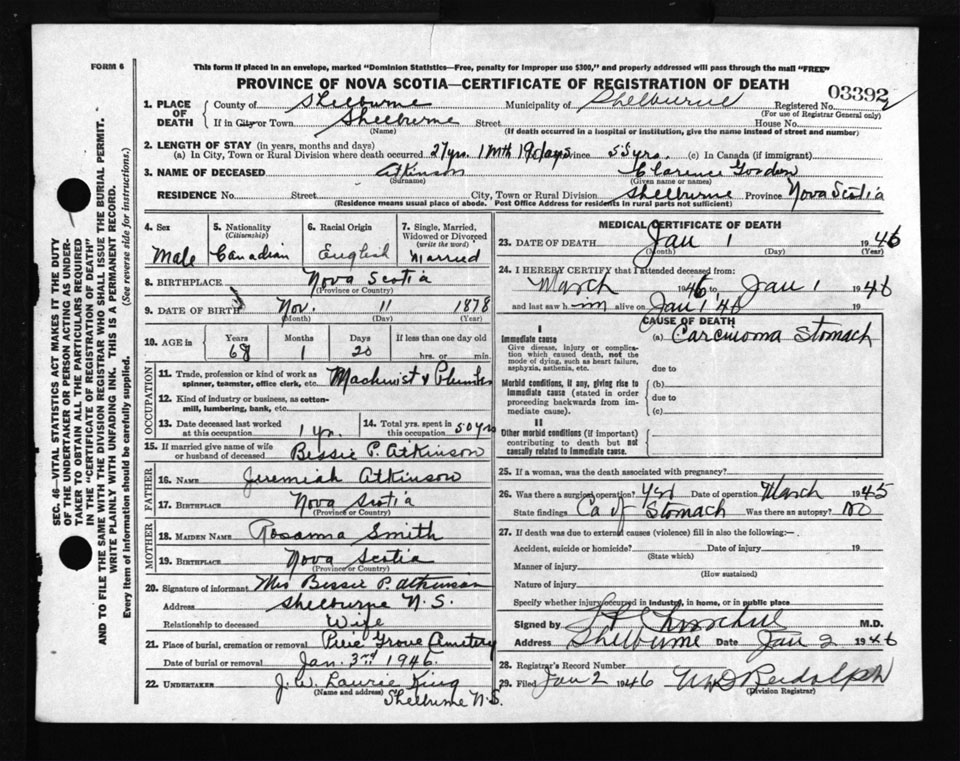 FORM 6
This form if placed in an envelope, marked "Dominion Statistics—Free, penalty for improper use $300," and properly addressed will pass through the mail "FREE"
PROVINCE OF NOVA SCOTIA—CERTIFICATE OF REGISTRATION OF DEATH
03392
1. PLACE OF DEATH
County of Shelburne Municipality of Shelburne Registered No.
(For use of Registrar General only)
If in City or Town Shelburne Street House No.
(Name) (If death occurred in a hospital or institution, give the name instead of street and number)
2. LENGTH OF STAY (in years, months and days)
(a) In City, Town or Rural Division where death occurred 27yrs. 1 mth 19 days ince 55yrs. (c) In Canada (if immigrant)
3. NAME OF DECEASED Atkinson Clarence Gordon
(Surname) (Given name or names)
RESIDENCE No. Street City, Town or Rural Division Shelburne Province Nova Scotia
(Residence means usual place of abode. Post Office Address for residents in rural parts not sufficient)
4. Sex Male
5. Nationality (Citizenship) Canadian
6. Racial Origin English
7. Single, Married, Widowed or Divorced (write the word) Married
8. BIRTHPLACE Nova Scotia
(Province or Country)
9. DATE OF BIRTH Nov. 11 1878
(Month) (Day) (Year)
10. AGE in Years Months Days If less than one day old
1 20 hrs. or min.
OCCUPATION
11. Trade, profession or kind of work as spinner, teamster, office clerk, etc. Machinist & Plumber
12. Kind of industry or business, as cotton-mill, lumbering, bank, etc.
13. Date deceased last worked at this occupation 1 yr.
14. Total yrs. spent in this occupation 50 yrs
15. If married give name of wife or husband of deceased Bessie P. Atkinson
FATHER
16. NAME Jeremiah Atkinson
17. BIRTHPLACE Nova Scotia
(Province or Country)
MOTHER
18. MAIDEN NAME Rosanna Smith
19. BIRTHPLACE Nova Scotia
(Province or Country)
20. Signature of informant Mrs Bessie P. Atkinson
Address Shelburne N.S.
Relationship to deceased Wife
21. Place of burial, cremation or removal Pine Grove Cemetery
Date of burial or removal Jan. 3rd 1946.
22. UNDERTAKER J. W. Laurie King
(Name and address) Shelburne N.S.
MEDICAL CERTIFICATE OF DEATH
23. DATE OF DEATH Jan 1 1946
(Month) (Day) (Year)
24. I HEREBY CERTIFY that I attended deceased from:
March 1945 to Jan 1 1946
and last saw him alive on Jan 1 46
CAUSE OF DEATH
I
Immediate cause (a) Carcinoma Stomach
Give disease, injury or complication which caused death, not the mode of dying, such as heart failure, asphyxia, asthenia, etc.
due to
Morbid conditions, if any, giving rise to immediate cause (stated in order proceeding backwards from immediate cause).
(b)
due to
(c)
II
Other morbid conditions (if important) contributing to death but not causally related to immediate cause.
25. If a woman, was the death associated with pregnancy?
26. Was there a surgical operation? Yes Date of operation March 1945
State findings Ca of Stomach Was there an autopsy? No
27. If death was due to external causes (violence) fill in also the following:—
Accident, suicide or homicide? Date of injury 19
(State which)
Manner of injury
(How sustained)
Nature of injury
Specify whether injury occurred in industry, in home, or in public place
Signed by M.D.
Address Shelburne Date Jan 2 1946
28. Registrar's Record Number
29. Filed Jan 2 1946
(Division Registrar)
SEC. 46—VITAL STATISTICS ACT MAKES IT THE DUTY
OF THE UNDERTAKER OR PERSON ACTING AS UNDER-
TAKER TO OBTAIN ALL THE PARTICULARS REQUIRED
IN THE "CERTIFICATE OF REGISTRATION OF DEATH"
AND TO FILE THE SAME WITH THE DIVISION REGISTRAR WHO SHALL ISSUE THE BURIAL PERMIT.
WRITE PLAINLY WITH UNFADING INK. THIS IS A PERMANENT RECORD.
Every item of information should be carefully supplied. (See reverse side for instructions.)